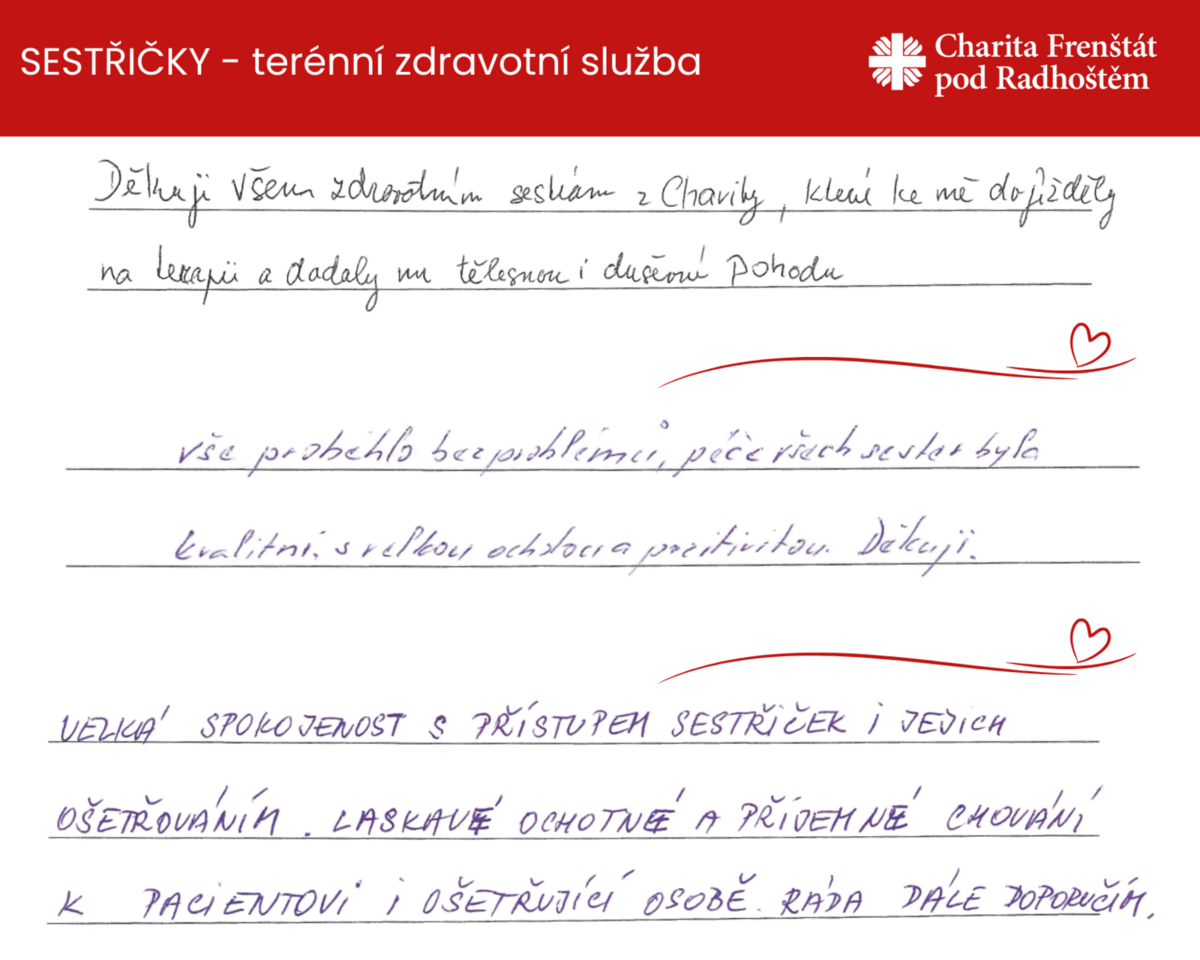 SESTŘIČKY - terénní zdravotní služba
Charita Frenštát
pod Radhoštěm
Děkuji všem zdravotním sestrám z Charity, které ke mě dojížděly
na terapii a dodaly mi tělesnou i duševní pohodu
vše proběhlo bez problémů, péče všech sester byla
kvalitní, s velkou ochotou a pozitivitou. Děkuji.
VELKÁ SPOKOJENOST S PŘÍSTUPEM SESTŘIČEK I JEJICH
OŠETŘOVÁNÍM. LASKAVÉ OCHOTNÉ A PŘÍJEMNÉ CHOVÁNÍ
K PACIENTOVI I OŠETŘUJÍCÍ OSOBĚ. RÁDA DÁLE DOPORUČÍM.